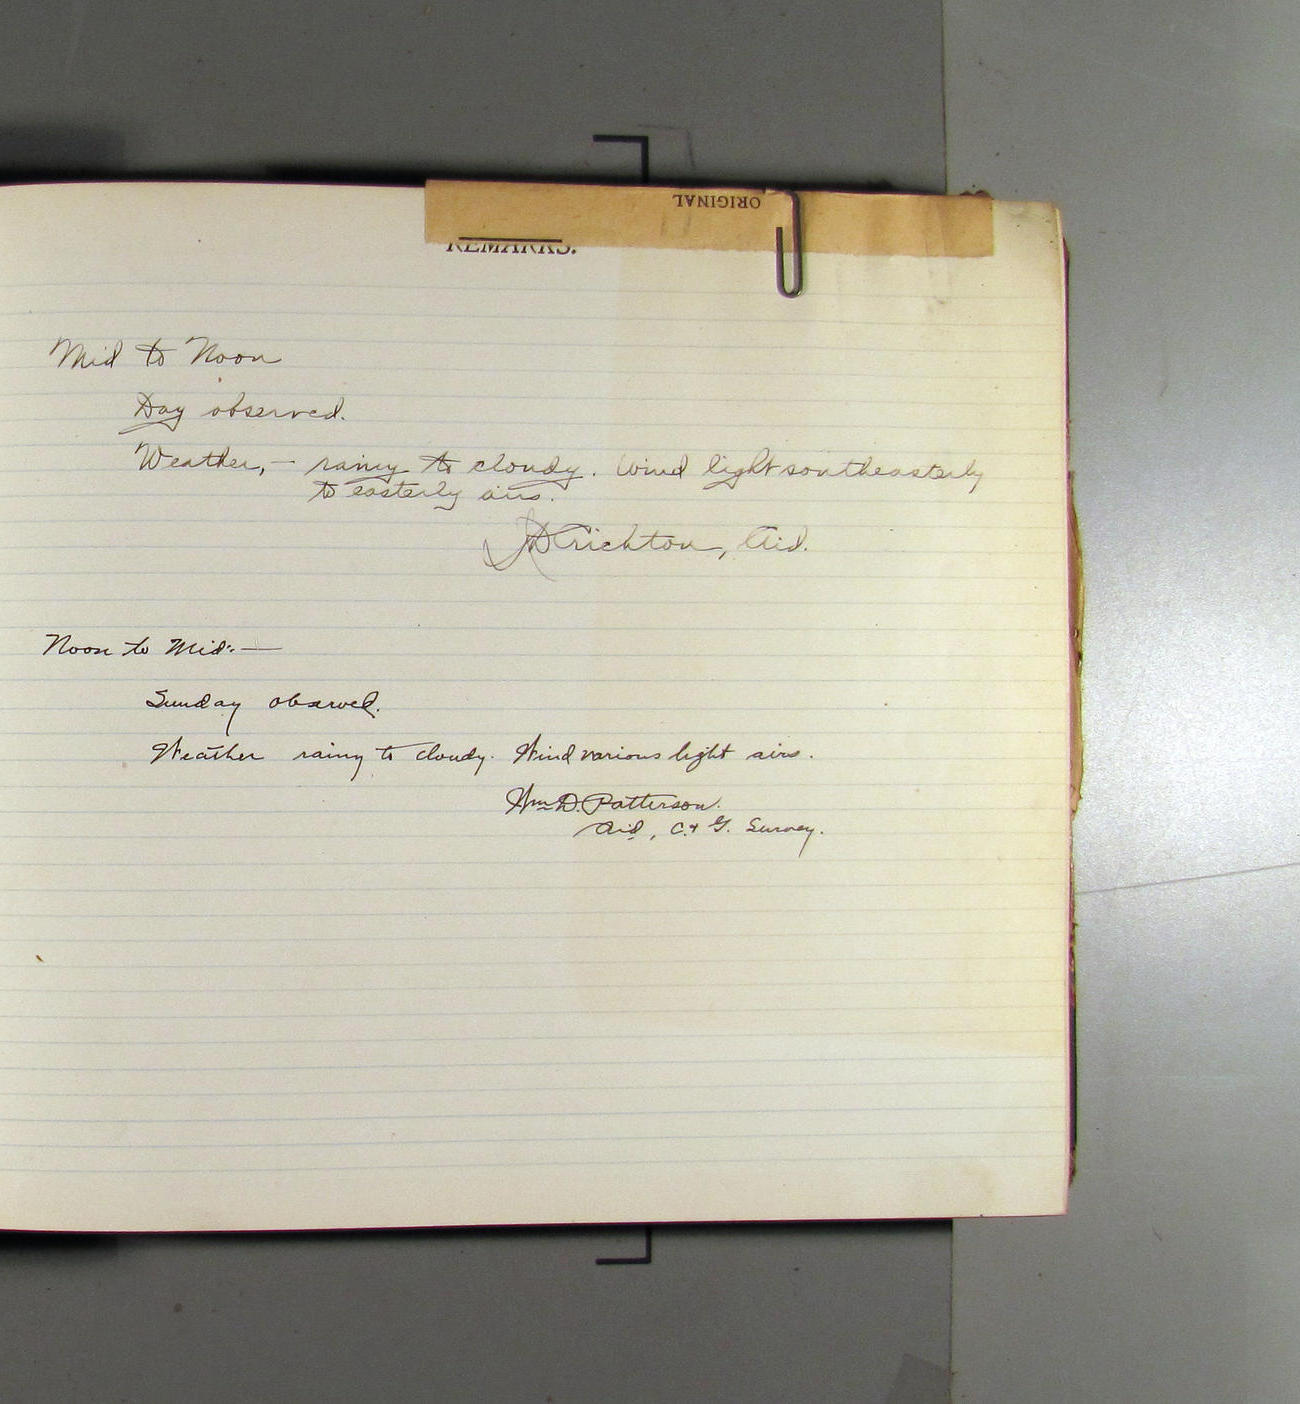 ORIGINAL
REMARKS.
Mid to Noon
Day observed.
Weather,— rainy to cloudy. Wind light southeasterly
to easterly airs.
JD Crichton, Aid.
Noon to Mid:—
Sunday observed.
Weather rainy to cloudy. Wind various light airs.
Wm D. Patterson.
Aid, C. & G. Survey.